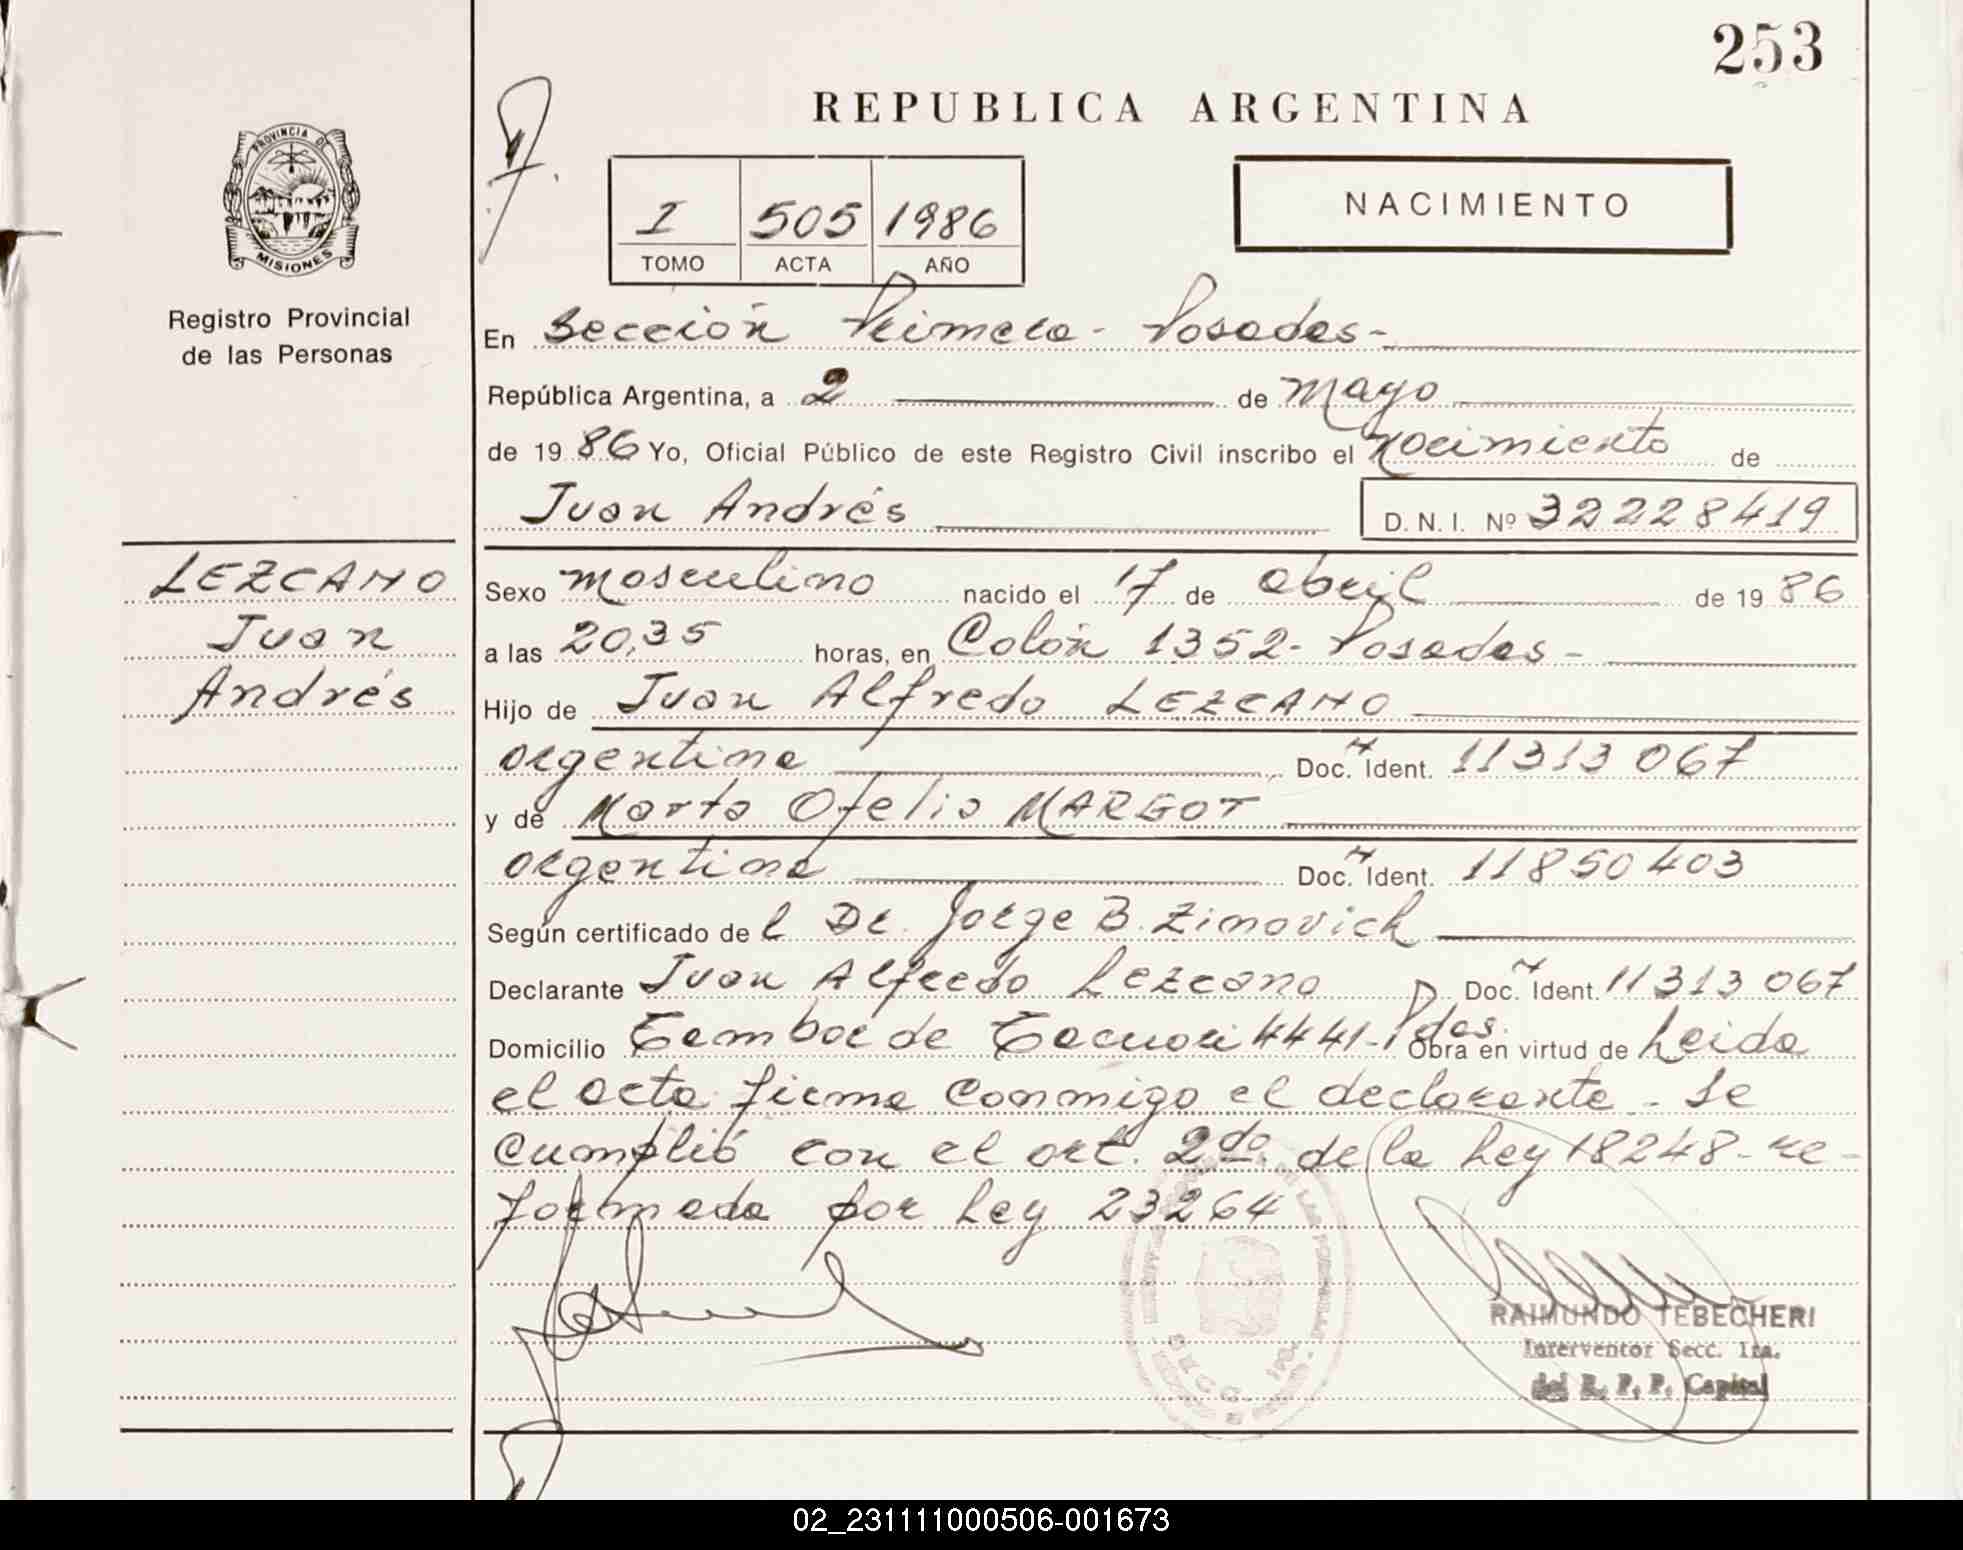 253
REPUBLICA ARGENTINA
PROVINCIA DE
MISIONES
Registro Provincial
de las Personas
I 505 1986
TOMO ACTA AÑO
NACIMIENTO
En Sección Primera - Posadas -
República Argentina, a 2 de Mayo
de 1986 Yo, Oficial Público de este Registro Civil inscribo el nacimiento de
Juan Andrés D.N.I. Nº 32228419
LEZCANO
Juan
Andrés
Sexo masculino nacido el 17 de abril de 1986
a las 20,35 horas, en Colón 1352 - Posadas -
Hijo de Juan Alfredo LEZCANO
argentina Doc. Ident. 11313067
y de Marta Ofelia MARGOT
argentina Doc. Ident. 11850403
Según certificado del Dr. Jorge B. Zimovich
Declarante Juan Alfredo Lezcano Doc. Ident. 11313067
Domicilio Tambor de Tacuari 4441 - Pdas. Obra en virtud de Leida
el acta firma conmigo el declarante - Se
cumplió con el art. 2do. de la Ley 18248 - re-
formada por Ley 23264
RAIMUNDO TEBECHERI
Interventor Secc. 1ra.
del R. P. P. Capital
02_231111000506-001673